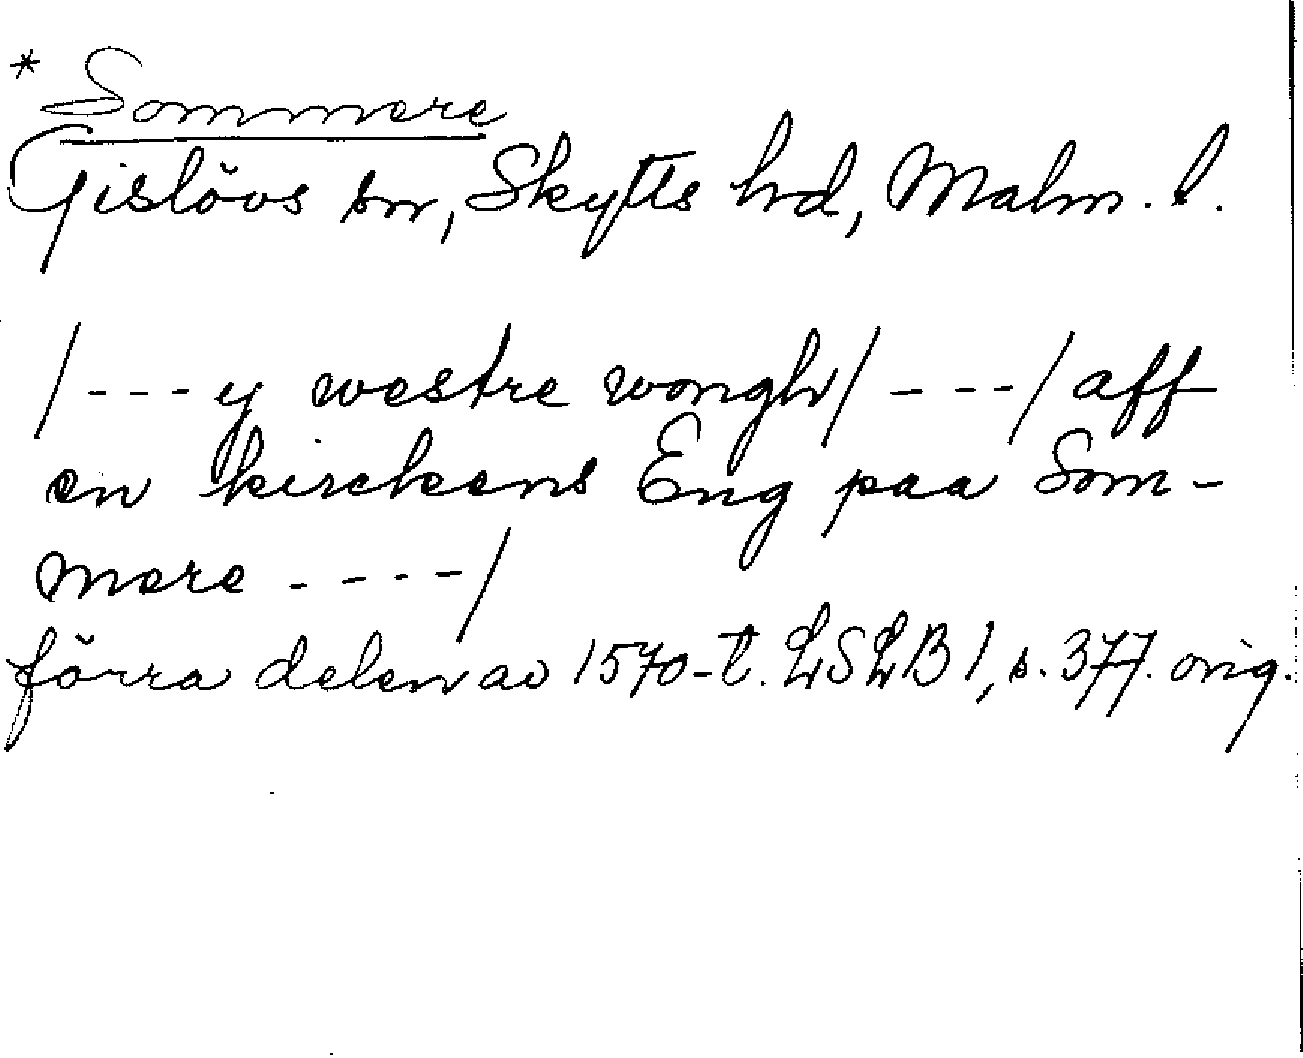 * Sommere
Gislövs sn, Skytts hd, Malm. l.
/---y westre wongh/ ---/ aff
en kirckens Eng paa Som-
mere ----/
förra delen av 1570-t. LSLB 1, s. 377. orig.